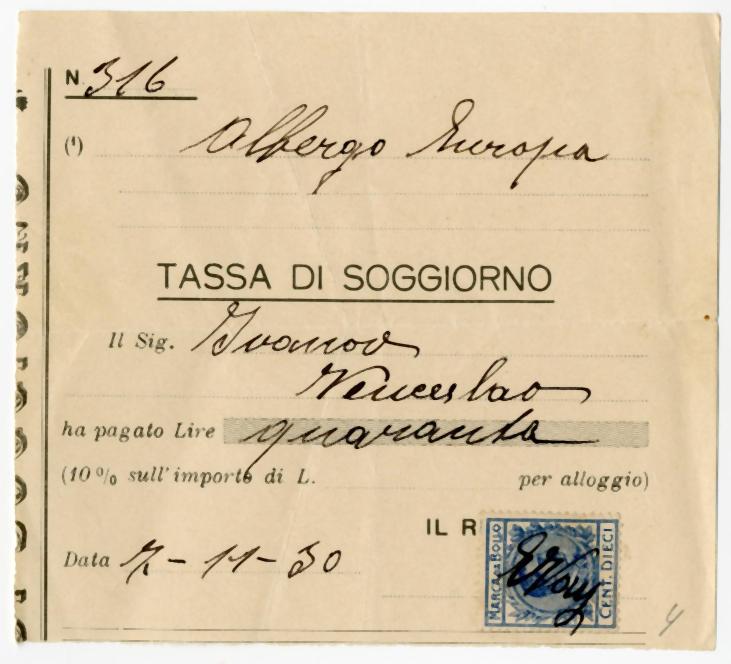 N. 316
(¹) Albergo Europa
TASSA DI SOGGIORNO
Il Sig. Ivanov
Venceslao
ha pagato Lire quaranta
(10% sull'importo di L. per alloggio)
IL R
Data 7-11-30
MARCA DA BOLLO
CENT. DIECI
4